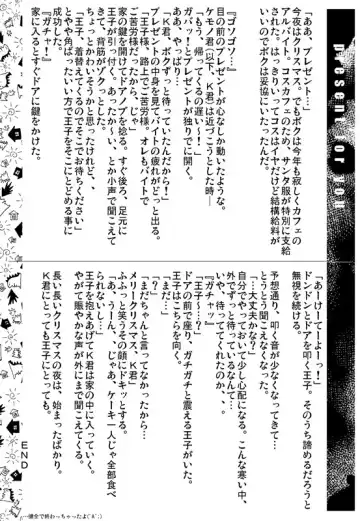 present for you
「ああ、プレゼント…」
今夜はクリスマス。でもボクは今年も寂しくカフェの
アルバイト。コスカフェのため、サンタ服が特別に支給
された。はっきりいってコスはイヤだけど結構給料が
いいのでボクは妥協にいたったんだ。
『ゴソゴソ…』
目の前のプレゼントが心なしか動いたような。
ケーキ君の手で、K君は紐をほどこうとした時―
「もう！帰ってくるの遅い～！」
ガバッ！とプレゼントが独りでに開く。
ああ、やっぱり…
「K君、ボクずっと待っていたんだから！」
プレゼントの中身を見てバイトの疲れがドッと出る。
「王子様、路上でご苦労様。オレもバイトで
ご苦労様だったから、じゃ」
家の鍵を開けてドアノブを捻る。すぐ後、足元に
王子が引っ付く。あったかい、とか小声で聞こえて
きて、背筋がゾクっとした。
ちょっとかわいそうかと思ったけれど、
「王子、着替えてくるのでそこでお待ちください」
と、やや角ば、たいいい方で王子をそこにとどめる事に
成功した。
『ガチャ！』
家に入るとすぐドアに鍵をかけた。
「あーけーてーよーっ！」
ドンドンとドアを叩く王子。そのうち諦めるだろうと
無視を続ける。
予想通り、叩く音が少なくなってきて…
とうとう聞こえなくなった。
「…大丈夫かな…」
自分でやっておいて少し心配になる。こんな寒い中、
外でずっと待っているなんて…
いや、待っててくれたのか、、
『ガチャッ』
「王子…？」
王子はこちらを向く。
ドアの前で座り、ガチガチと震える王子がいた。
「まだちゃんと言ってなかったから…
メリークリスマス、K君」
ふふっと笑うその顔にドキッとする。
「そうだね…。じゃあ、ケーキ一人じゃ全部食べ
られないし…」
王子を抱えあげてK君は家の中に入っていく。
やがて賑やかな声が外にまで聞こえてくる。
長い長いクリスマスの夜は、始まったばかり。
K君にとっても王子にとっても。
END
…健全で終わっちゃったよ(´Д`;)